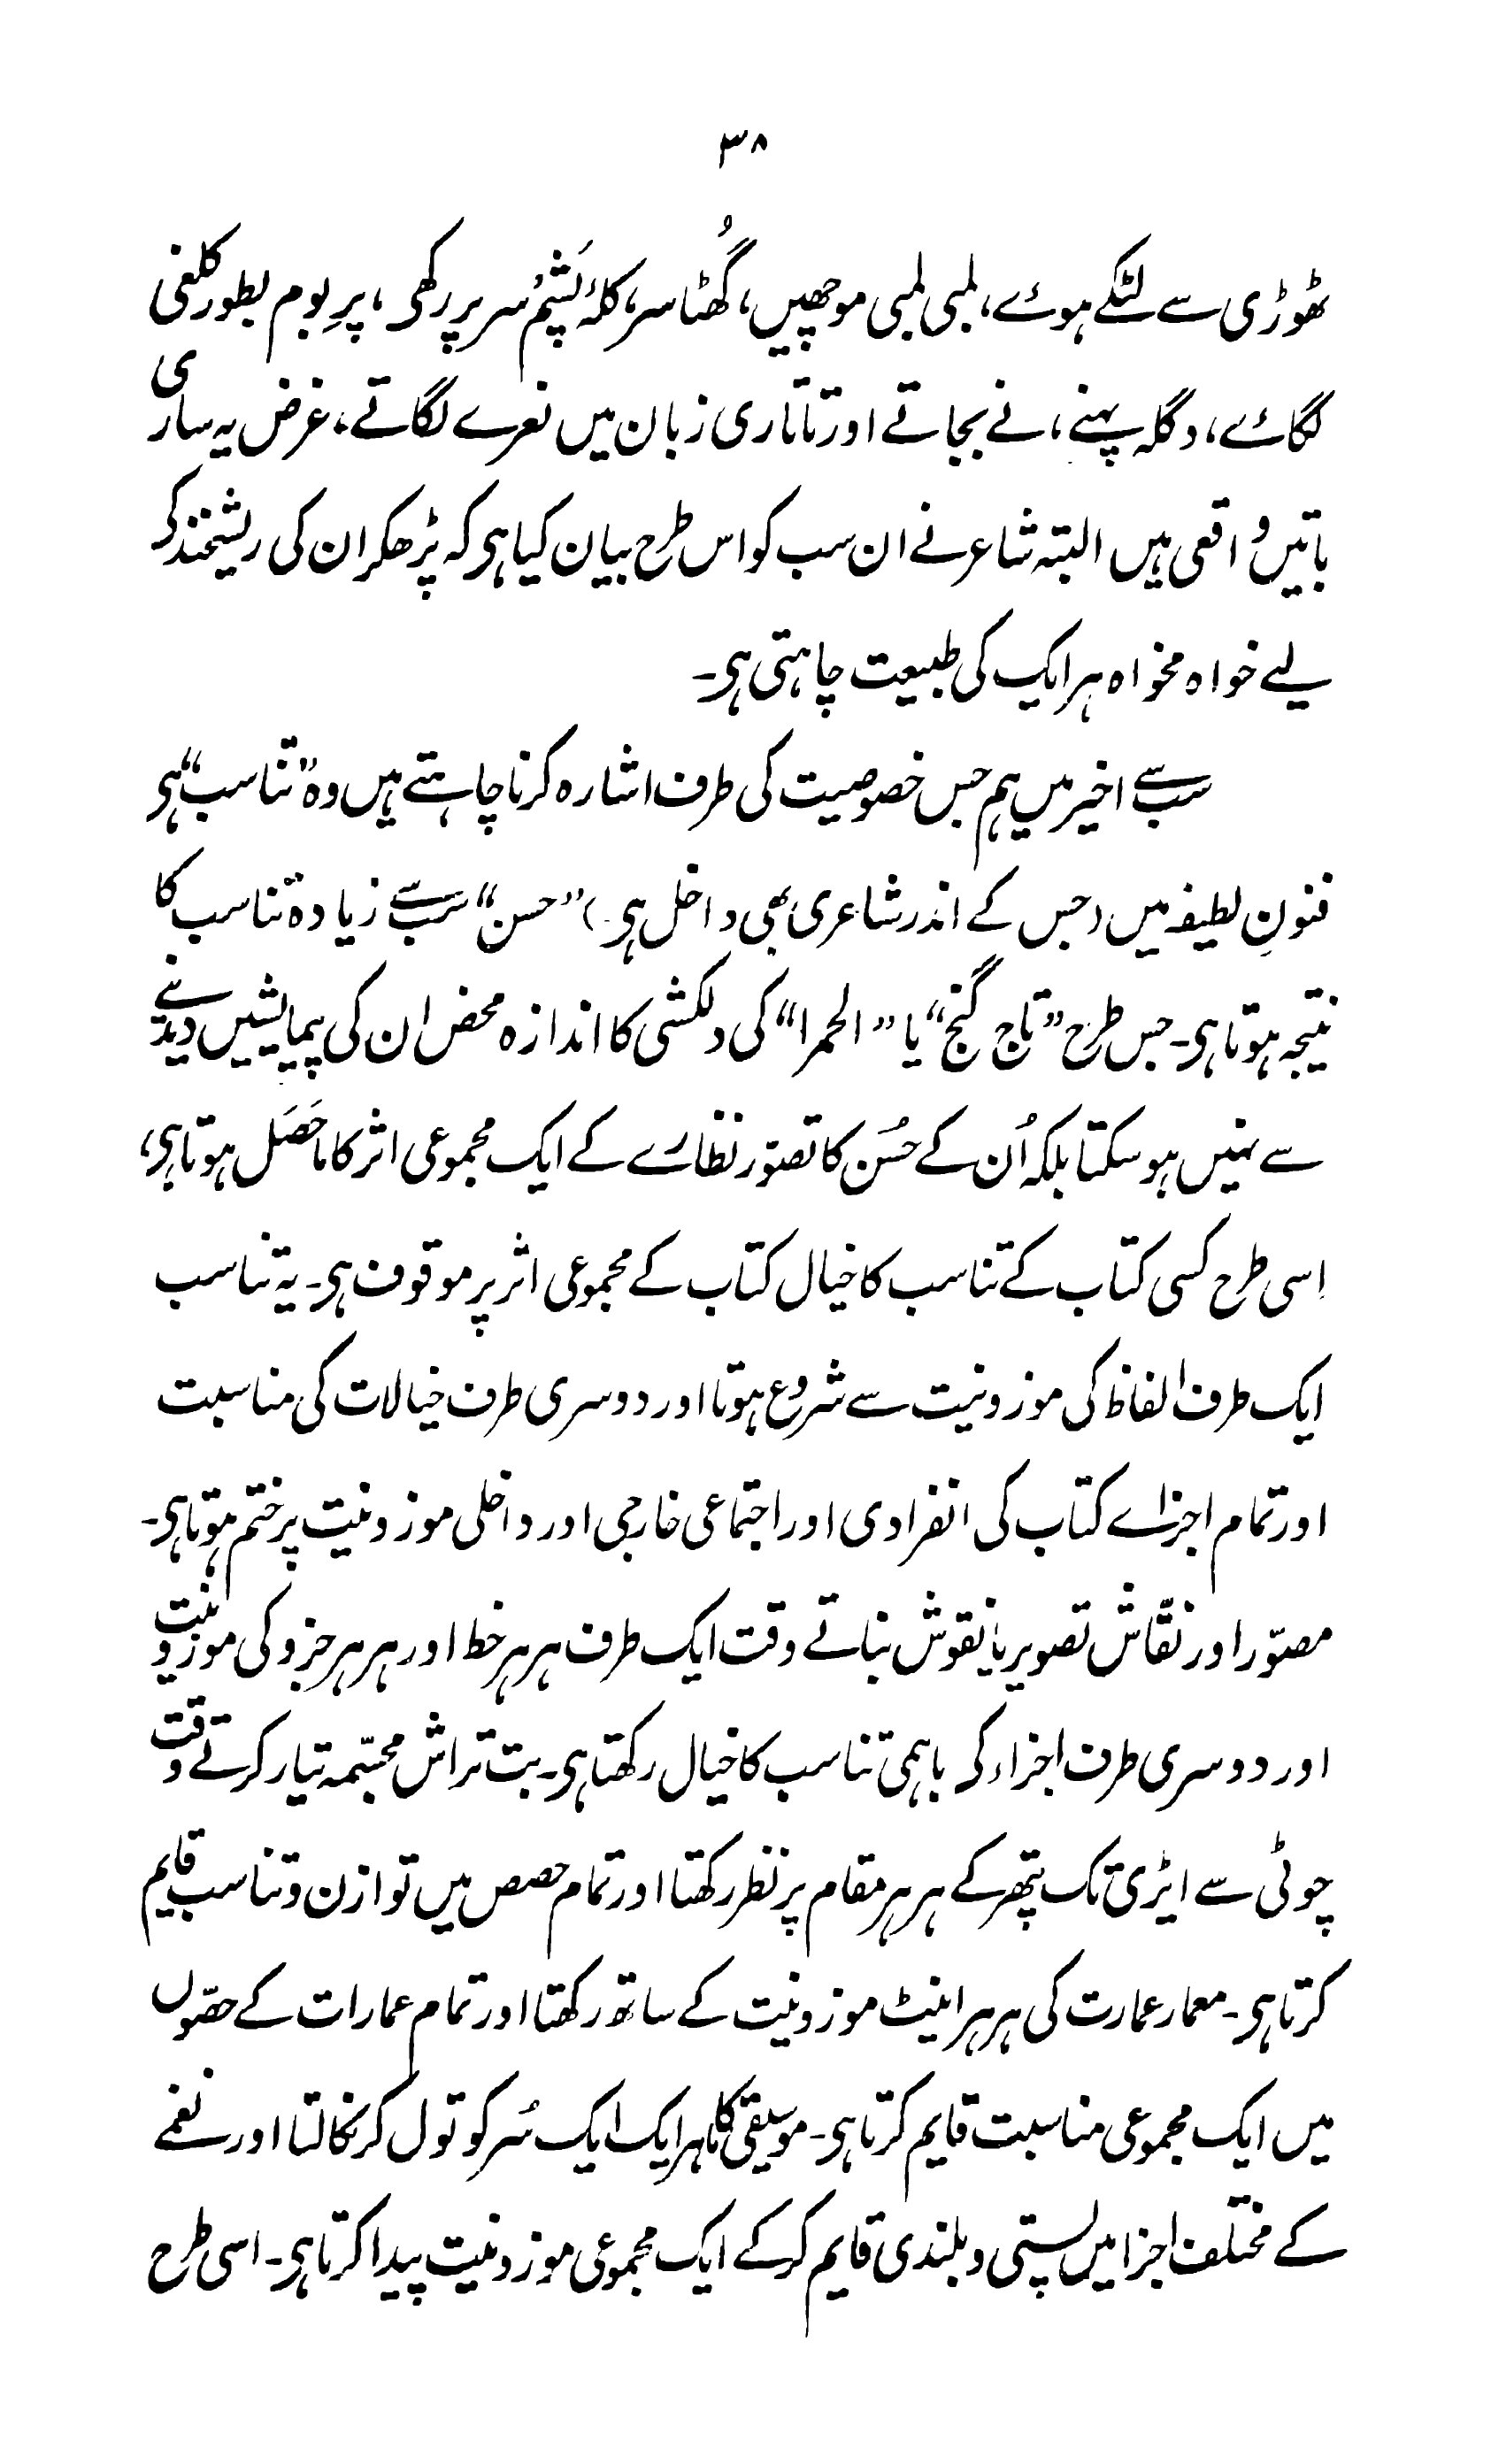 ۳۸
ٹھوڑی سے لٹکے ہوئے، لمبی لمبی موچھیں، گُھٹا سر، کلہٴ پَشم سر پر رکھی، پرِ بوم بطور کلغی
لگائے، دگلہ پہنے، نے بجاتے اور تاتاری زبان میں نعرے لگاتے۔ غرض یہ ساری
باتیں واقعی ہیں البتہ شاعر نے ان سب کو اس طرح بیان کیا ہی کہ پڑھکر ان کی ریشخند کے
لیے خواہ مخواہ ہر ایک کی طبیعت چاہتی ہی۔
سب سے اخیر میں ہم جس خصوصیت کی طرف اشارہ کرنا چاہتے ہیں وہ ”تناسب“ ہی
فنونِ لطیفہ میں (جس کے اندر شاعری بھی داخل ہی) ”حسن“ سب سے زیادہ تناسب کا
نتیجہ ہوتا ہی۔ جس طرح ”تاج گنج“ یا ”الحمرا“ کی دلکشی کا اندازہ محض ان کی پیمایشیں دیدینے
سے نہیں ہو سکتا بلکہ اُن کے حُسن کا تصوّر نظارے کے ایک مجموعی اثر کا ماحَصَل ہوتا ہی،
اِسی طرح کسی کتاب کے تناسب کا خیال کتاب کے مجموعی اثر پر موقوف ہی۔ یہ تناسب
ایک طرف الفاظ کی موزونیت سے شروع ہوتا اور دوسری طرف خیالات کی مناسبت
اور تمام اجزاے کتاب کی انفرادی اور اجتماعی خارجی اور داخلی موزونیت پر ختم ہوتا ہی۔
مصوّر اور نقّاش تصویر یا نقوش بناتے وقت ایک طرف ہر ہر خط اور ہر ہر جزو کی موزونیت
اور دوسری طرف اجزاء کے باہمی تناسب کا خیال رکھتا ہی۔ بت تراش مجسّمہ تیار کرتے وقت
چوٹی سے ایڑی تک پتھر کے ہر ہر مقام پر نظر رکھتا اور تمام حصص میں توازن و تناسب قایم
کرتا ہی۔ معمار عمارت کی ہر ہر اینٹ موزونیت کے ساتھ رکھتا اور تمام عمارات کے حصّوں
میں ایک مجموعی مناسبت قایم کرتا ہی۔ موسیقی کا ماہر ایک ایک سُر کو تول کر نکالتا اور نغمے
کے مختلف اجزا میں پستی و بلندی قایم کر کے ایک مجموعی موزونیت پیدا کرتا ہی۔ اسی طرح